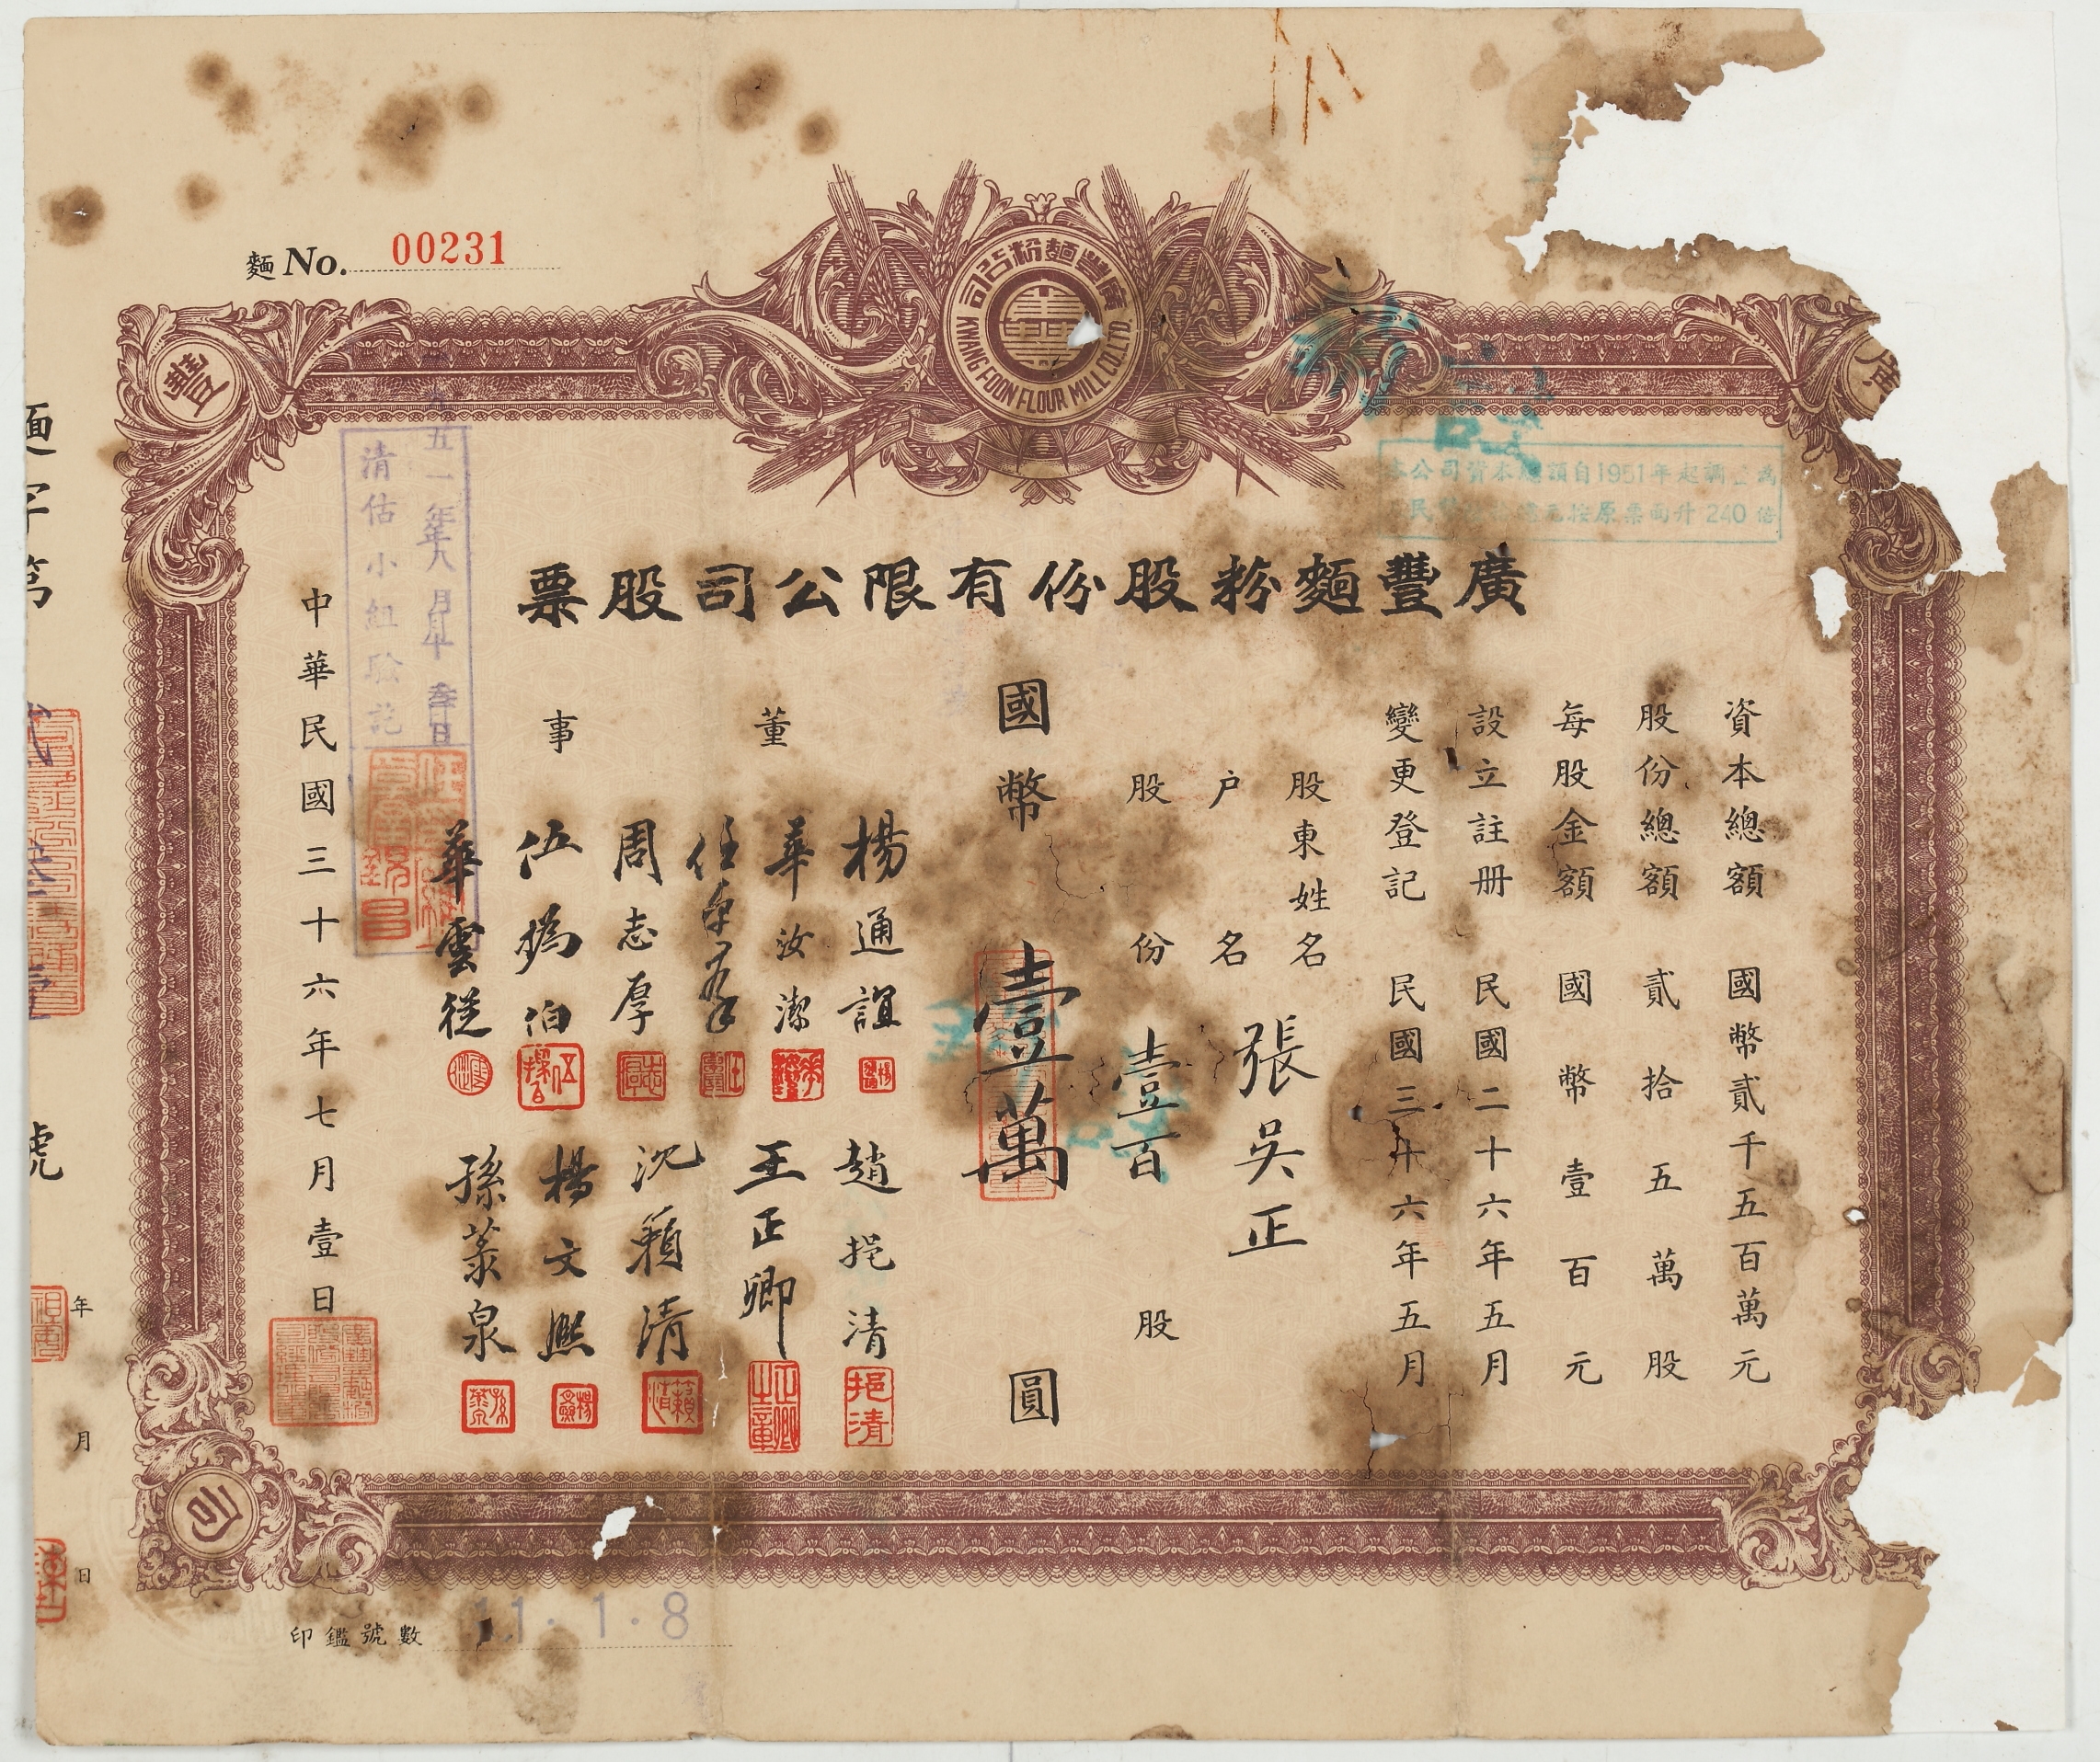 麵 No. 00231
廣豐麵粉公司
KWANG FOON FLOUR MILL CO. LTD.
豐
廣
本公司資本總額自1951年起調
民 按原票面升 240 倍
廣豐麵粉股份有限公司股票
資本總額 國幣貳千五百萬元
股份總額 貳拾五萬股
每股金額 國幣壹百元
設立註册 民國二十六年五月
變更登記 民國三十六年五月
股東姓名
户名 張吳正
股份 壹百股
國幣壹萬圓
董事
楊通誼
華汝潔
周志厚
華雲從
趙挹清
王正卿
沈籟清
楊文熙
孫蒸泉
挹清
正卿之章
中華民國三十六年七月壹日
五一年八月
清估小組驗訖
司
印鑑號數 11·1·8
號
年
月
日